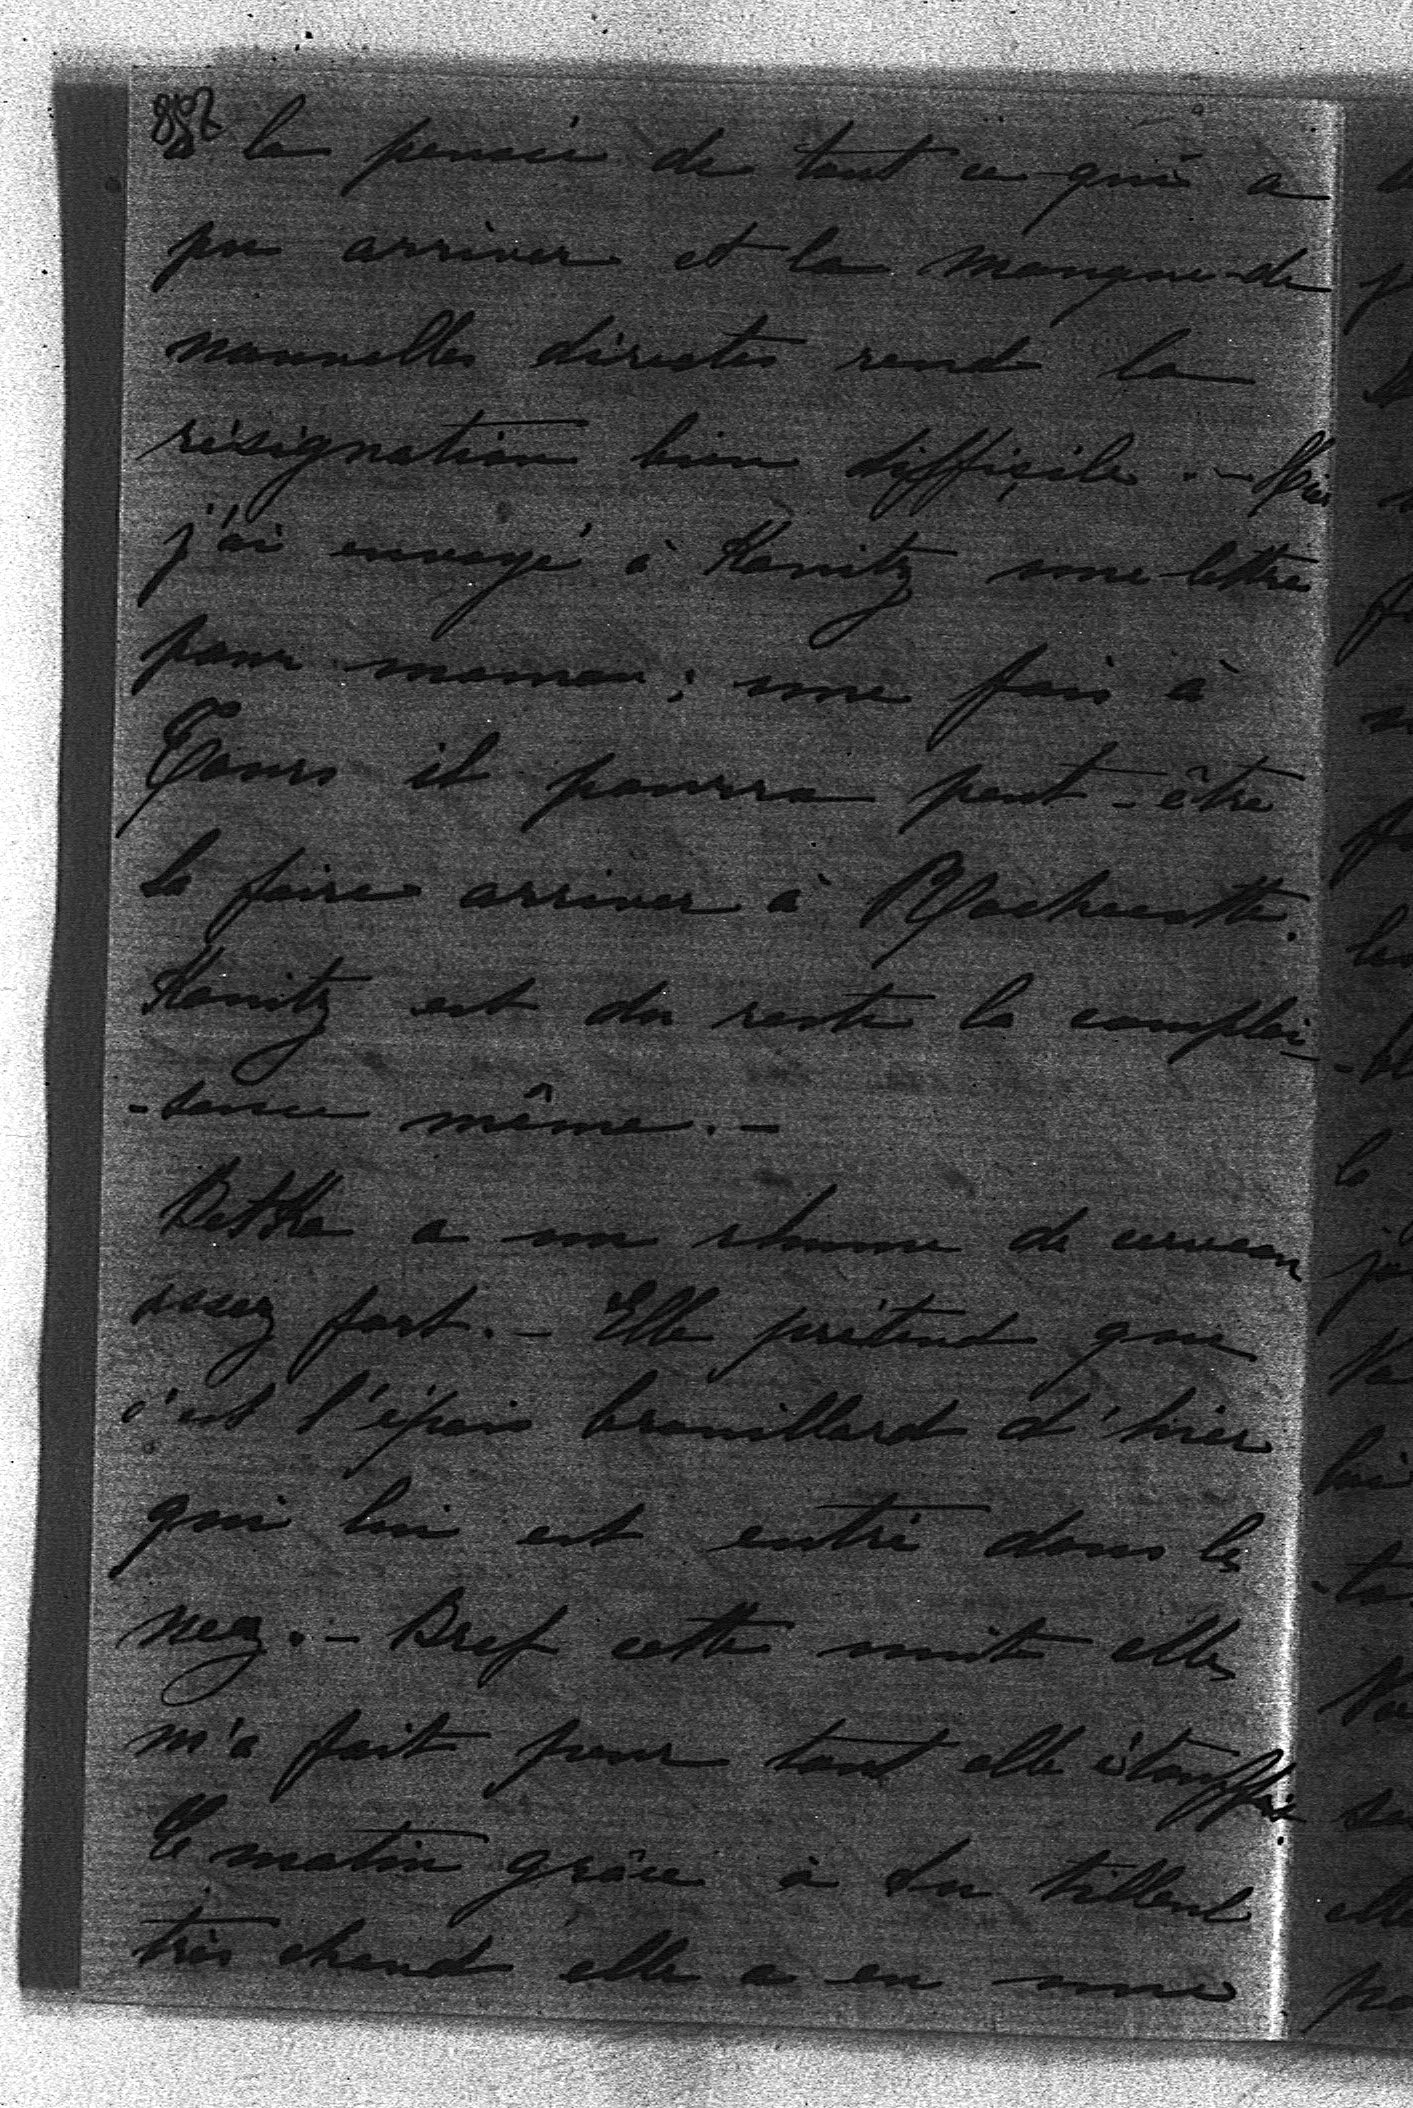 à la pensée de tout ce qui a
pu arriver et la manque de
nouvelles directes rend la
résignation bien difficile. - Hier
j'ai envoyé à Kanitz une lettre
pour maman ; une fois à
Tours il pourra peut-être
la faire arriver à Rochecotte.
Kanitz est du reste la complai-
-sance même. -
Betka a un rhume de cerveau
assez fort. - Elle prétend que
c'est l'épais brouillard d'hier
qui lui est entré dans le
nez. - Bref cette nuit elle
m'a fait peur tant elle étouffait.
Ce matin grâce à du tilleul
très chaud elle a eu une